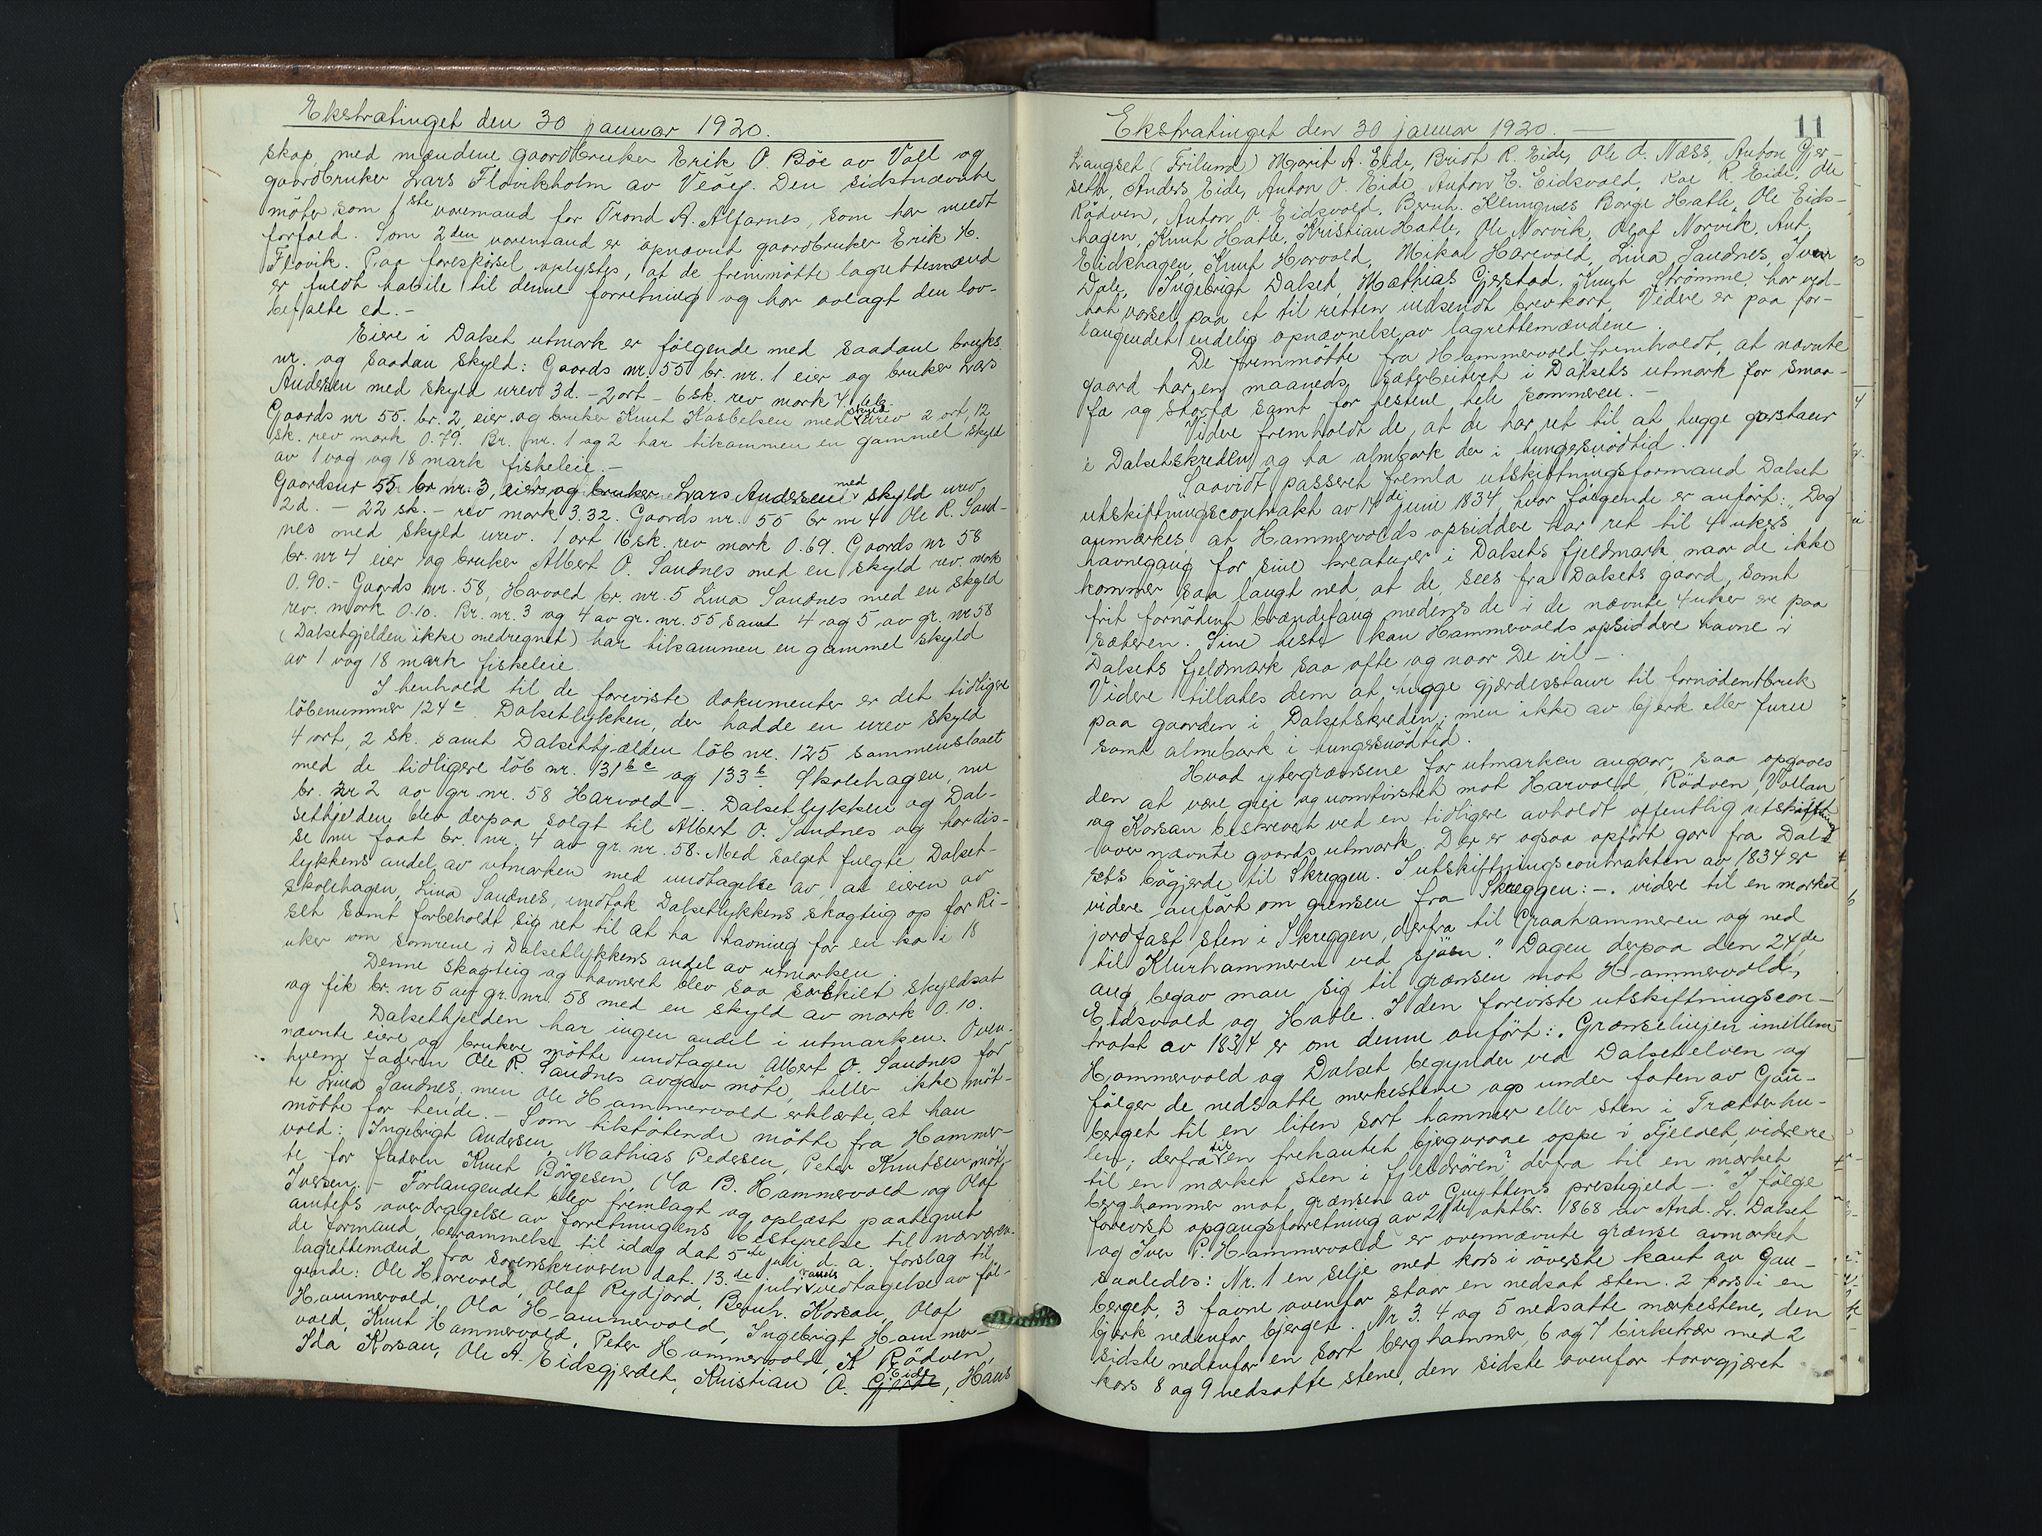 Ekstratinget den 30 januar 1920.
skap, med mændene gaardbruker Erik O. Böe av Voll og
gaardbruker Lars Flovikholm av Veöy. Den sidstnævnte
möter som 1ste varemand for Trond A. Alfarnes, som har meldt
forfald. Som 2den varemand er opnævnt gaardbruker Erik H.
Flovik. Paa forespörsel oplystes, at de fremmötte lagrettemænd
er fuldt habile til denne forretning og har avlagt den lov-
befalte ed. -
Eiere i Dalset utmark er fölgende med saadane bruks
nr. og saadan skyld: Gaards nr 55 br. nr. 1 eier og bruker Lars
Andersen med skyld urev 3d. - 2 ort - 6 sk. rev mark 4.
Gaards nr 55. br. 2, eier og bruker Knut Kasbelsen med skyld urev 2 ort, 12
sk. rev mark 0.79. Br. nr. 1 og 2 har tilsammen en gammel skyld
av 1 vog og 18 mark fiskeleie. -
Gaardsnr 55 br nr. 3, eier og bruker Lars Andersen med skyld urev,
2d. - 22 sk. - rev mark 3.32. Gaards nr. 55 br nr 4 Ole R. Sand-
nes med skyld urev. 1 ort 16 sk. rev mark 0.69. Gaards nr 58
br. nr 4 eier og bruker Albert O. Sandnes med en skyld rev. mark
0.90. - Gaards nr. 58, Harvold br. nr. 5 Lina Sandnes med en skyld
rev. mark 0.10. Br. nr. 3 og 4 av gr. nr. 55 samt 4 og 5 av gr. nr 58
(Dalsethjelden ikke medregnet) har tilsammen en gammel skyld
av 1 vog 18 mark fiskeleie.
I henhold til de foreviste dokumenter er det tidligere
löbenummer 124c. Dalsetlykken, der hadde en urev skyld
4 ort, 2 sk. samt Dalsethjælden löb nr. 125 sammenslaaet
med de tidligere löb nr. 131 b c og 133 b Skolehagen, nu
br. nr 2 av gr. nr. 58 Harvold -. Dalsetlykken og Dal-
sethjelden blev derpaa solgt til Albert O. Sandnes og har dis-
se nu faat br. nr. 4 av gr. nr. 58. Med salget fulgte Dalset-
lykkens andel av utmarken med undtagelse av at eieren av
skolehagen, Lina Sandnes, undtok Dalsetlykkens skogteig op for Ri-
set samt forbeholdt sig ret til at ha havning for en ko i 18
uker om somrene i Dalsetlykkens andel av utmarken.
Denne skogteig og havneret blev saa særskilt skyldsat
og fik br. nr 5 av gr. nr 58 med en skyld av mark 0.10.
Dalsethjelden har ingen andel i utmarken. Oven-
nævnte eiere og brukere mötte undtagen Albert O. Sandnes for
hvem faderen Ole R. Sandnes avgav möte, heller ikke möt-
te Lina Sandnes, men Ole Hammervold erklærte, at han
mötte for hende. - Som tilstötende mötte fra Hammer-
vold: Ingebrigt Andersen, Mathias Pedersen, Peter Knutsen möt-
te for faderen Knut Börgesen, Ola B. Hammervold og Olaf
Iversen. - Forlangendet blev fremlagt og oplæst paategnet
amtets overdragelse av forretningens bestyrelse til nærværen-
de formand, berammelse til idag dat 5te juli d. a. forslag til
lagrettemænd fra sorenskriveren dat. 13.de juli samt vedtagelse av föl-
gende: Ole Harevold, Olaf Rydjord, Bernh. Korsan, Olaf
Hammervold, Ola Hammervold, Ingebrigt Hammer-
vold, Knut Hammervold, Peter Hammervold, K Rödven,
Ida Korsan, Ole A. Eidsgjerdet, Kristian A. Eide, Hans
Ekstratinget den 30 januar 1920. -
11
Langset (Frilund) Marit A. Eide, Brist R. Eide, Ole O. Næss, Anton Gjer-
seth, Anders Eide, Anton O. Eide, Anton E. Eidsvold, Kal R. Eide, Ole
Rödven, Anton O Eidsvold, Bernh. Klungnes Borge Hatle, Ole Eids-
hagen, Knut Hatle, Kristian Hatle, Ole Norvik, Olaf Norvik, Ant.
Eidshagen, Knut Horvold, Mikal Harevold, Lina Sandnes, Iver
Dale, Ingebrigt Dalset, Mathias Gjerstad, Knut Strömme, har ved-
tat varsel paa et til retten indsendt brevkort. Videre er paa for-
langendet endelig opnævnelse av lagrettemændene.
De fremmötte fra Hammervold fremholdt, at nævnte
gaard har en maaneds sæterbeiteret i Dalsets utmark for smaa-
fæ og storfæ samt for hestene hele sommeren. -
Videre fremholdt de, at de har ret til at hugge garstaur
i Dalsetskreden og ta almbark der i hungersnödtid.
Saavidt passeret fremla utskiftningsformand Dalset
utskiftningscontrakt av 17de juni 1834 hvor fölgende er anfört: "Dog
anmerkes at Hammervolds opsiddere har ret til 4 ukers
havnegang for sine kreaturer i Dalsets fjeldmark naar de ikke
kommer saa langt ned, at de sees fra Dalsets gaard, samt
frit fornödent brændefang medens de i de nævnte 4 uker er paa
sæteren. Sine heste kan Hammervolds opsiddere havne i
Dalsets fjeldmark saa ofte og naar De vil -.
Videre tillates dem at hugge gjærdesstaur til fornödent bruk
paa gaarden i Dalsetskreden; men ikke av bjerk eller furu
samt almebark i hungersnödtid.
Hvad ytergrænsene for utmarken angaar, saa opgaves
den at være grei og uomtvistet mot Harvold, Rödven, Vollan
og Korsan beskrevet ved en tidligere avholdt offentlig utskiftning
over nævnte gaards utmark. Der er ogsaa opfört gar fra Dal-
sets bögjerde til Skreggen. I utskiftningscontrakten av 1834 er
videre anfört om grensen fra Skreggen: -. videre til en mærket
jordfast sten i Skreggen, derfra til Graahammeren og ned
til Klurhammeren ved sjöen." Dagen derpaa den 24de
aug. begav man sig til grænsen mot Hammervold,
Eidsvold og Hatle. I den foreviste utskiftningscon-
trakt av 1834 er om denne anfört: "Grænselinjen imellem
Hammervold og Dalset begynder ved Dalsetelven og
fölger de nedsatte merkestene op under foten av Gau-
berget til en liten sort hammer eller sten i Trætterhu-
len; derfra til en frekantet bjergvraae oppe i Fjeldet, videre
til en mærket sten i fjeldrören? derfra til en mærket
berghammer mot grænsen av Gryttens prestegjeld -." I fölge
forevist opgangsforretning av 21de oktbr. 1868 av And. L. Dalset
og Iver P. Hammervold er ovennævnte grænse avmærket
saaledes: Nr. 1 en selje med kors i överste kant av Gau-
berget, 3 favne ovenfor staar en nedsat sten. 2 kors i en
bjerk nedenfor bjerget. Nr 3. 4 og 5 nedsatte mærkestene, den
sidste nedenfor en sort berghammer, 6 og 7 birketrær med 2
kors 8 og 9 nedsatte stene, den sidste ovenfor torvgjæret